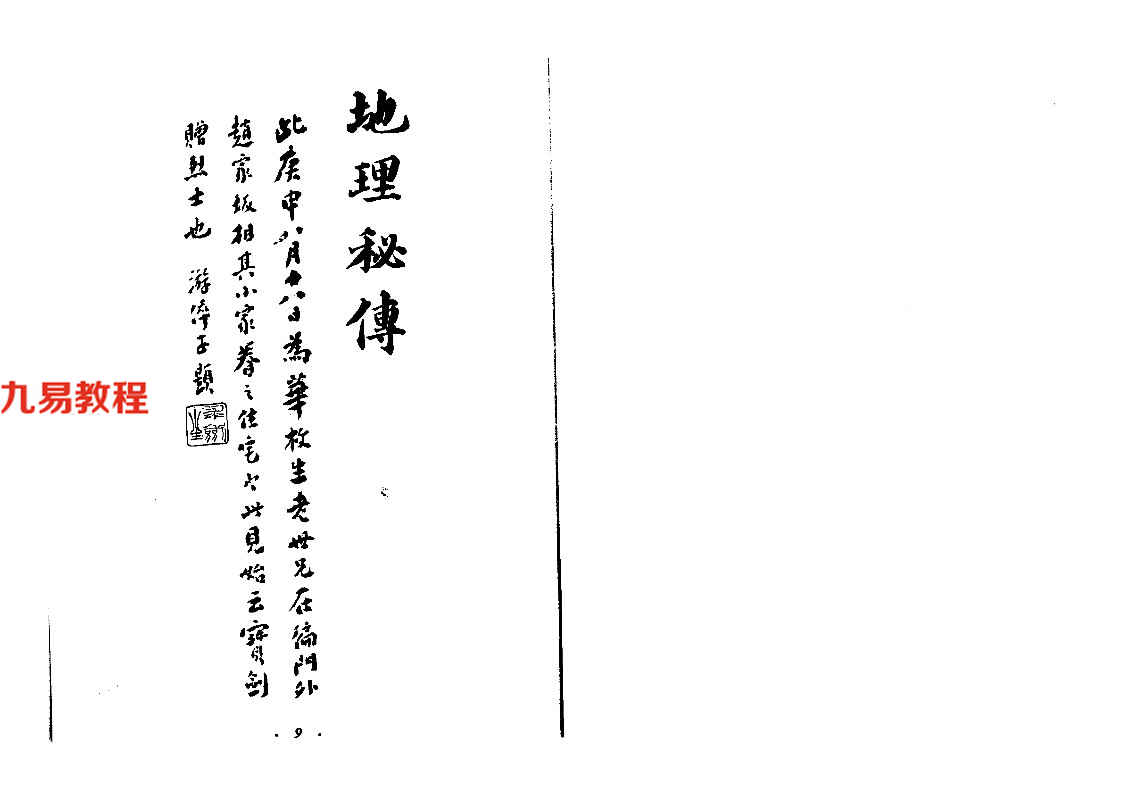 地理秘傳
此庚申八月十八日為華枚生老世兄在偏門外
趙家坂相其小家眷之住宅以此見始云寶劍
贈烈士也 游儕子題
九易教程
· 9 ·